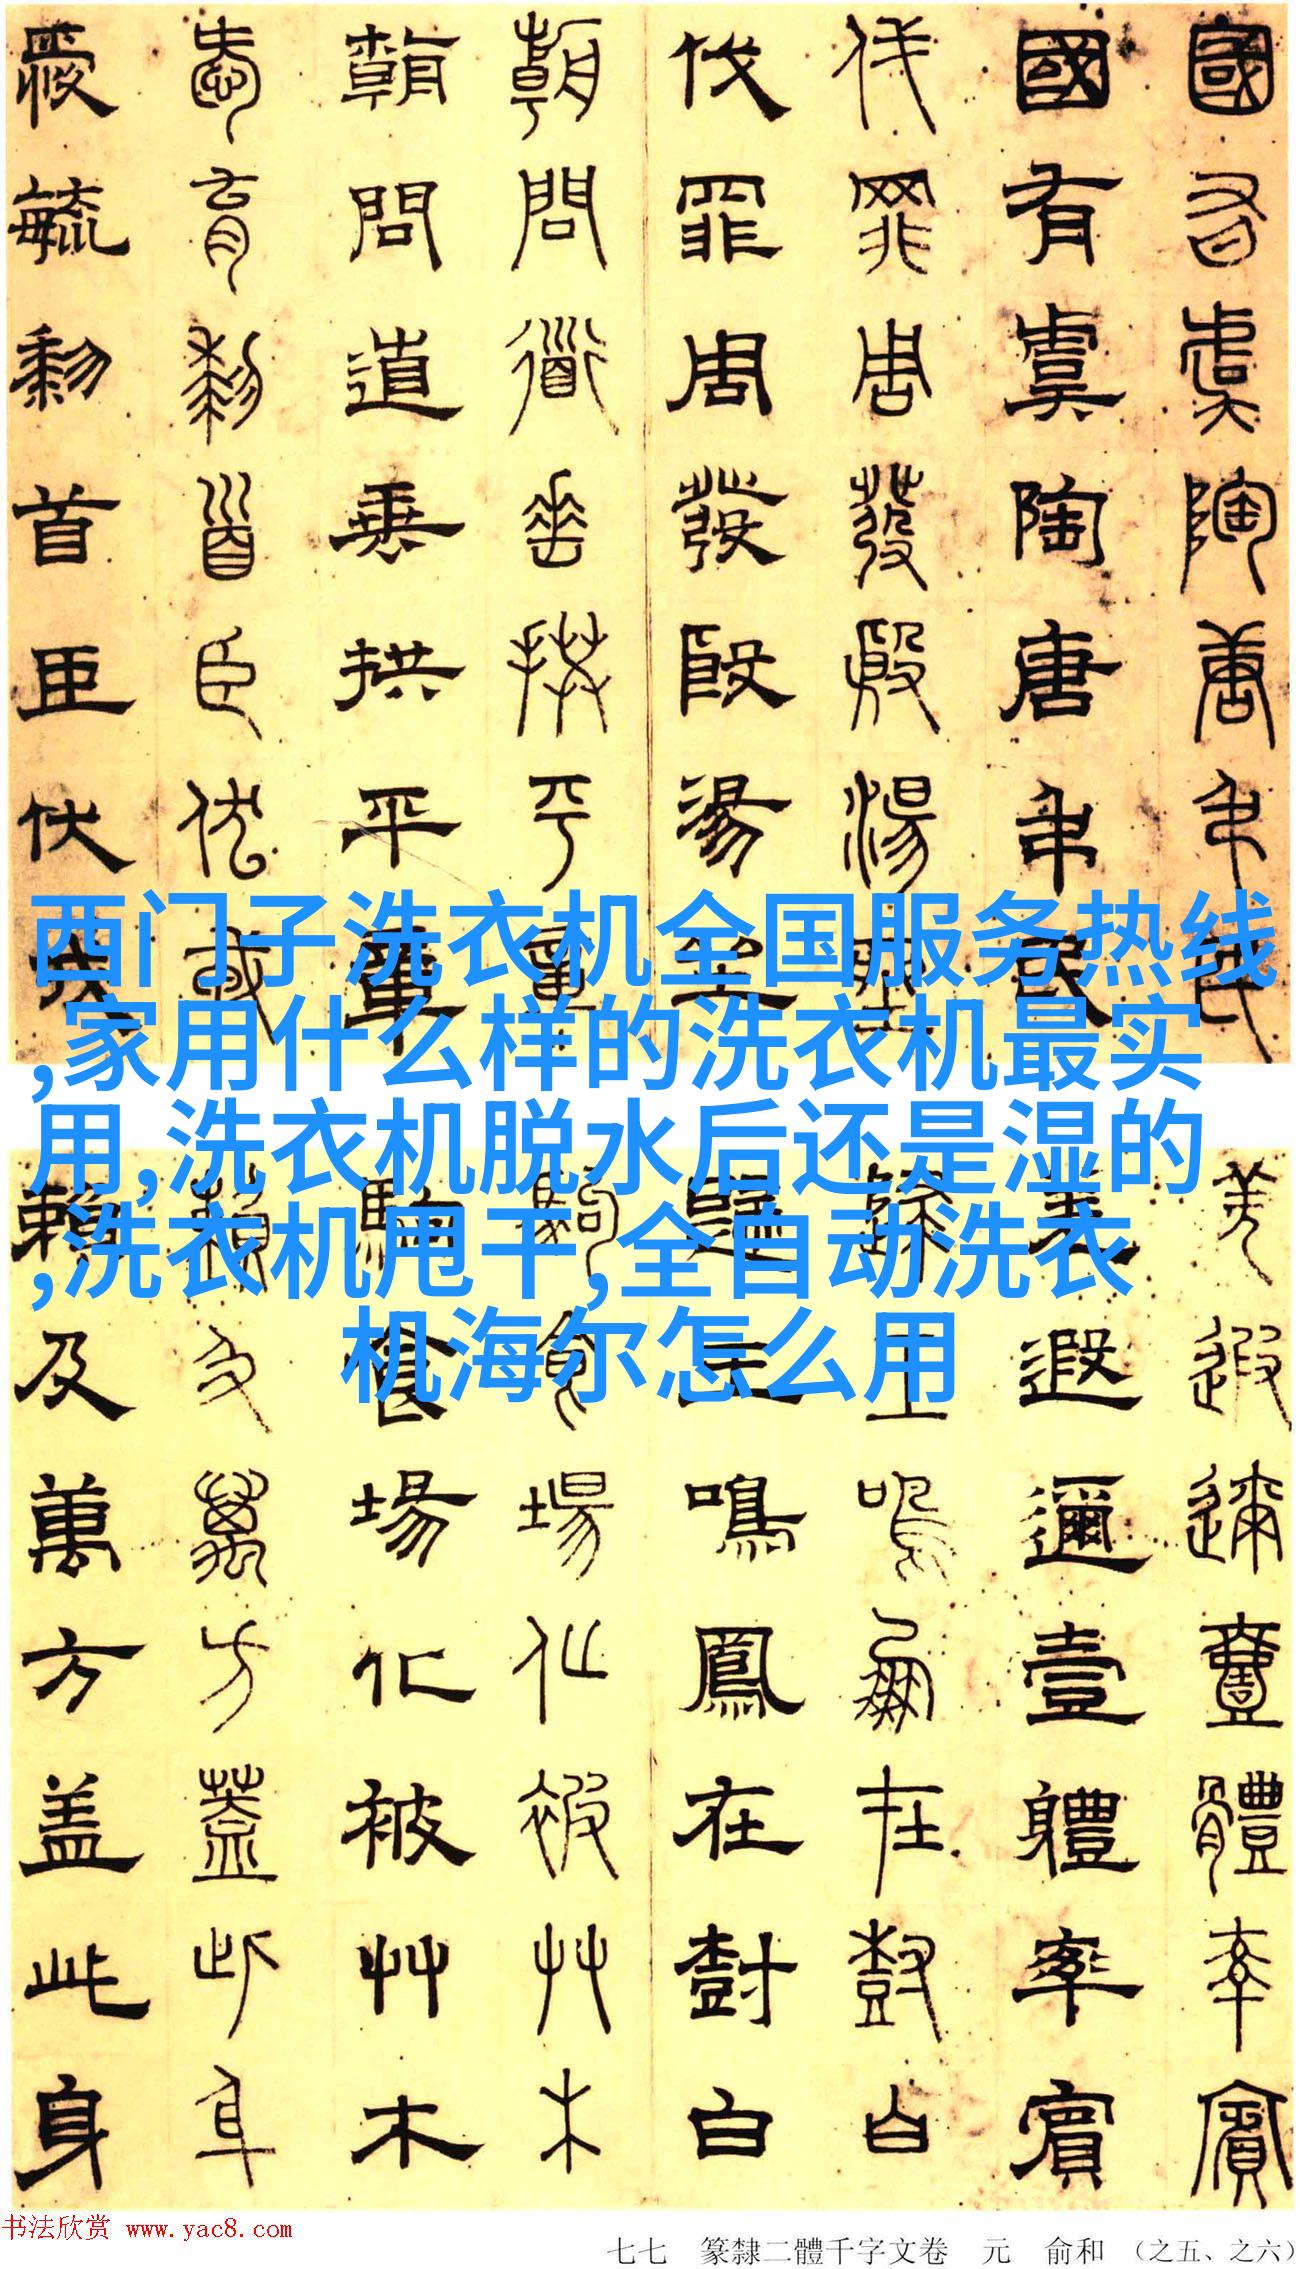 國有虞陶唐弔民
國有虞陶唐弔民
伐罪周發殷湯坐
伐罪周發殷湯坐
朝問道垂拱平章
朝問道垂拱平章
愛育黎首臣伏戎
愛毓黎首臣伏戎
西门子洗衣机全国服务热线
,家用什么样的洗衣机最实
用,洗衣机脱水后还是湿的
,洗衣机甩干,全自动洗衣
机海尔怎么用
羌遐邇壹體率賓
羌遐邇壹體率賓
歸王鳴鳳在樹白
歸王鳴鳳在樹白
駒食場化被艸木
駒食場化被艸木
賴及萬方蓋此身
賴及萬方蓋此身
书法欣赏 www.yac8.com
七七 篆隸二體千字文卷 元 俞和 (之五、之六)